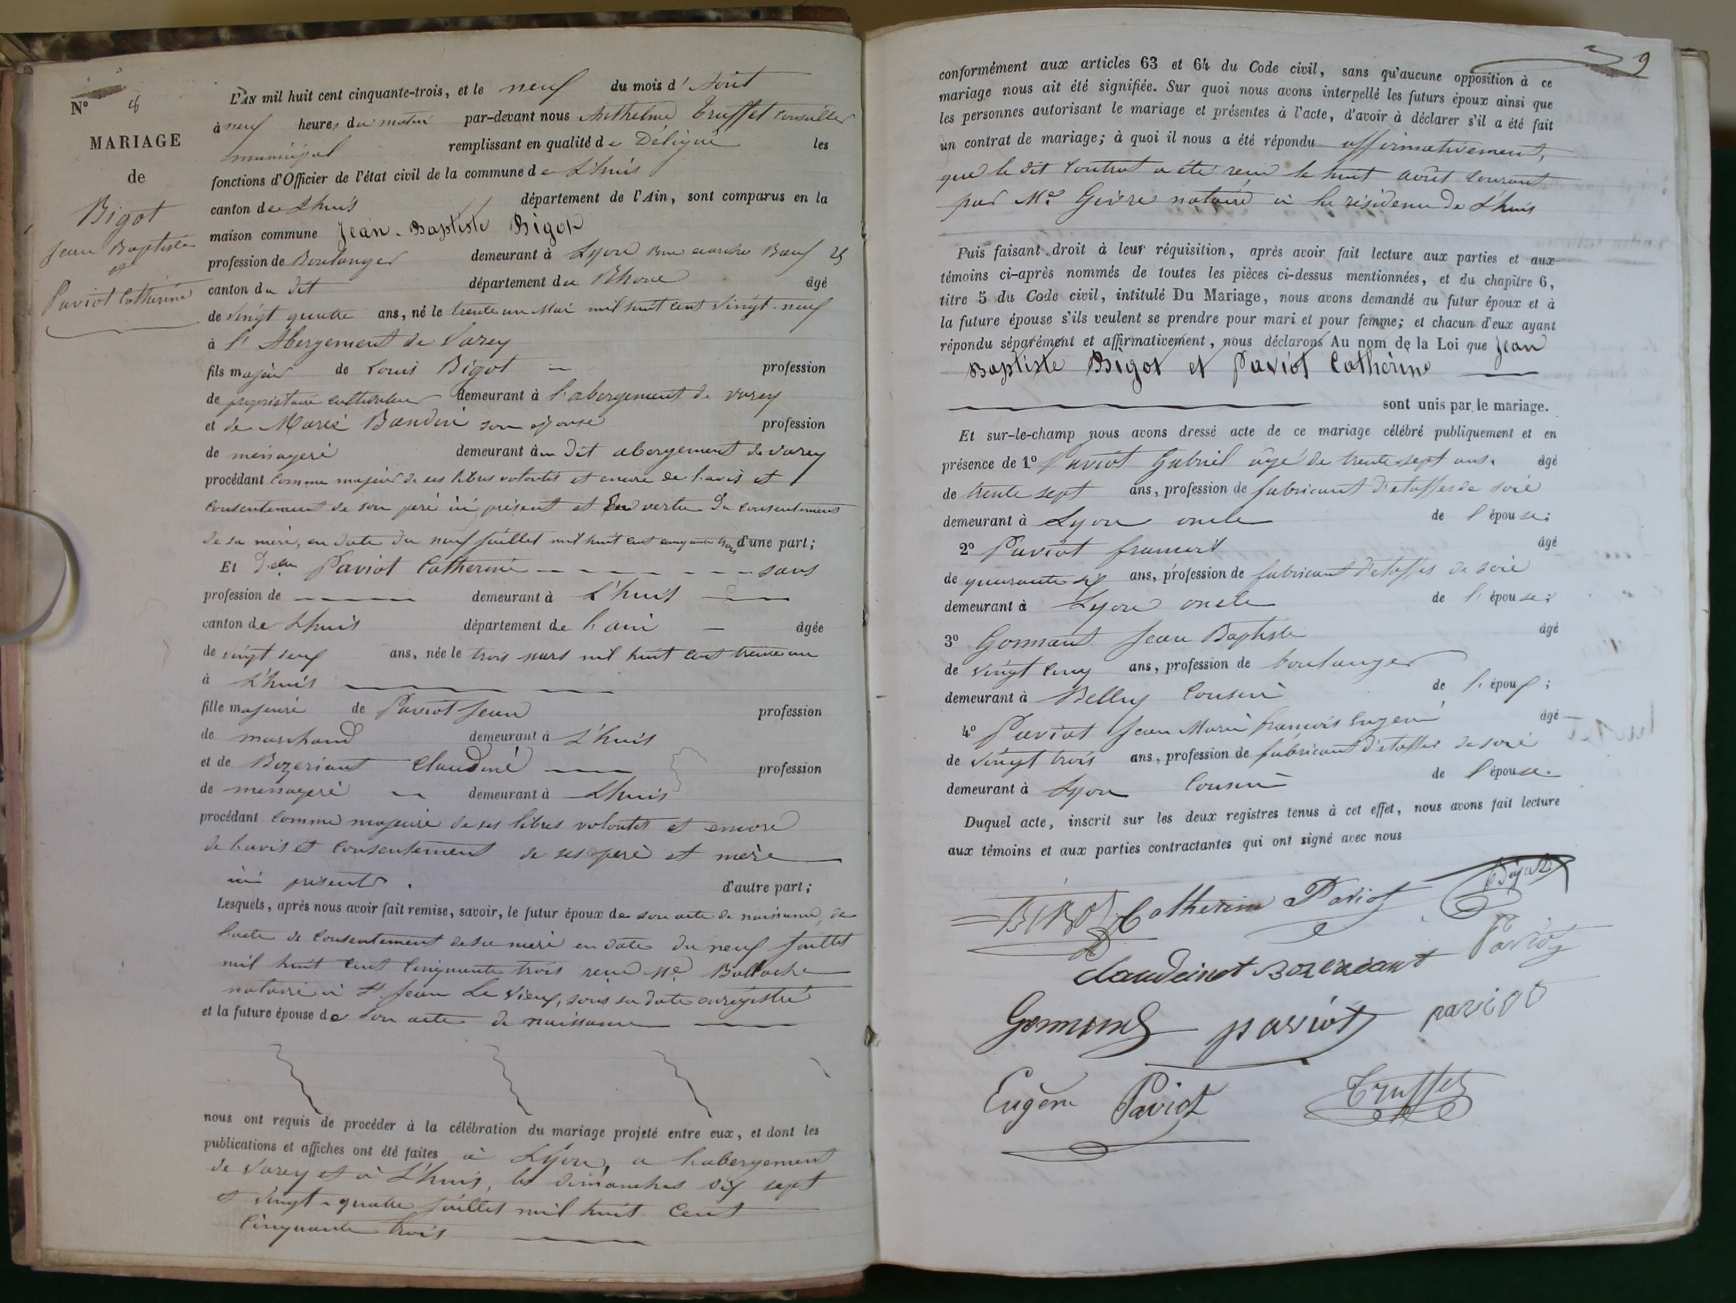 N° 8
MARIAGE
de
Bigot
Jean Baptiste
et
Paviot Catherine
L'AN mil huit cent cinquante-trois, et le neuf du mois d'Août
à neuf heures du matin par-devant nous Anthelme Truffet conseiller
municipal remplissant en qualité de Délégué les
fonctions d'Officier de l'état civil de la commune de L'huis
canton de L'huis département de l'Ain, sont comparus en la
maison commune Jean-Baptiste Bigot
profession de Boulanger demeurant à Lyon Rue Bœuf 25
canton du dit département du Rhône âgé
de vingt quatre ans, né le trente un Mai mil huit cent vingt-neuf
à l'Abergement de Varey
fils majeur de Louis Bigot profession
de propriétaire cultivateur demeurant à l'abergement de varey
et de Marie Baudin son épouse profession
de ménagère demeurant au dit abergement de varey
procédant comme majeur de ses libres volontés et encore de l'avis et
consentement de son père ici présent et En vertu du consentement
de sa mère, en date du neuf juillet mil huit cent cinquante trois d'une part;
Et Delle Paviot Catherine sans
profession de demeurant à L'huis
canton de L'huis département de l'ain âgée
de vingt deux ans, née le trois mars mil huit cent trente un
à L'huis
fille majeure de Paviot Jean profession
de marchand demeurant à L'huis
et de Bozeriant Claudine profession
de ménagère demeurant à L'huis
procédant comme majeure de ses libres volontés et encore
de l'avis et consentement de ses père et mère
ici présents. d'autre part;
Lesquels, après nous avoir fait remise, savoir, le futur époux de son acte de naissance, de
l'acte de consentement de sa mère en date du neuf juillet
mil huit cent cinquante trois reçu Me
notaire à St Jean Le Vieux, sous sa date enregistré
et la future épouse de son acte de naissance
nous ont requis de procéder à la célébration du mariage projeté entre eux, et dont les
publications et affiches ont été faites à Lyon, a l'abergement
de Varey et à L'huis, les dimanches dix sept
et vingt-quatre juillet mil huit cent
cinquante trois
9
conformément aux articles 63 et 64 du Code civil, sans qu'aucune opposition à ce
mariage nous ait été signifiée. Sur quoi nous avons interpellé les futurs époux ainsi que
les personnes autorisant le mariage et présentes à l'acte, d'avoir à déclarer s'il a été fait
un contrat de mariage; à quoi il nous a été répondu affirmativement,
que le dit contrat a été reçu le huit août courant
par Me Givre notaire à la résidence de L'huis
Puis faisant droit à leur réquisition, après avoir fait lecture aux parties et aux
témoins ci-après nommés de toutes les pièces ci-dessus mentionnées, et du chapitre 6,
titre 5 du Code civil, intitulé Du Mariage, nous avons demandé au futur époux et à
la future épouse s'ils veulent se prendre pour mari et pour femme; et chacun d'eux ayant
répondu séparément et affirmativement, nous déclarons Au nom de la Loi que Jean
Baptiste Bigot et Paviot Catherine
sont unis par le mariage.
Et sur-le-champ nous avons dressé acte de ce mariage célébré publiquement et en
présence de 1° Paviot Gabriel âgé de trente sept ans. âgé
de trente sept ans, profession de fabricant d'étoffes de soie
demeurant à Lyon oncle de l'épouse;
2° Paviot francois âgé
de quarante six ans, profession de fabricant d'étoffes de soie
demeurant à Lyon oncle de l'épouse;
3° Gonnant Jean Baptiste âgé
de vingt cinq ans, profession de boulanger
demeurant à Belley cousin de l'époux;
4° Paviot Jean Marie françois Eugène âgé
de vingt trois ans, profession de fabricant d'étoffes de soie
demeurant à Lyon cousin de l'épouse.
Duquel acte, inscrit sur les deux registres tenus à cet effet, nous avons fait lecture
aux témoins et aux parties contractantes qui ont signé avec nous
BIGOT Catherine Paviot Bigot
Claudeinet Bozereant Paviot
paviot paviot
Eugène Paviot Truffet